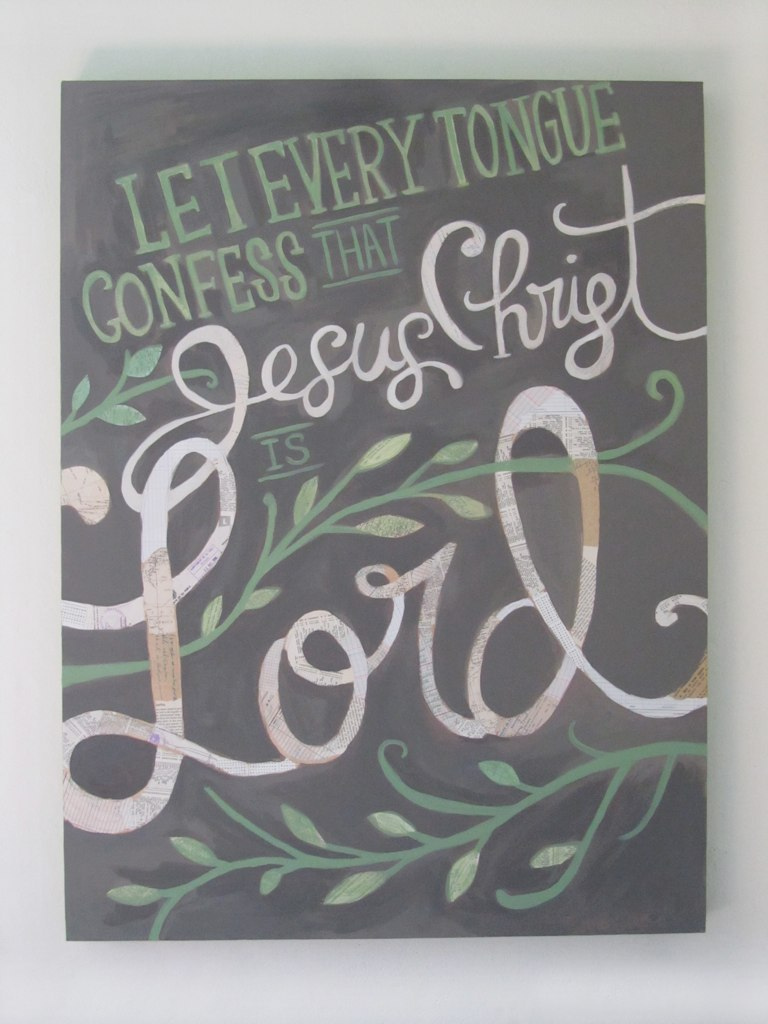 LET EVERY TONGUE
CONFESS THAT
Jesus Christ
IS
Lord